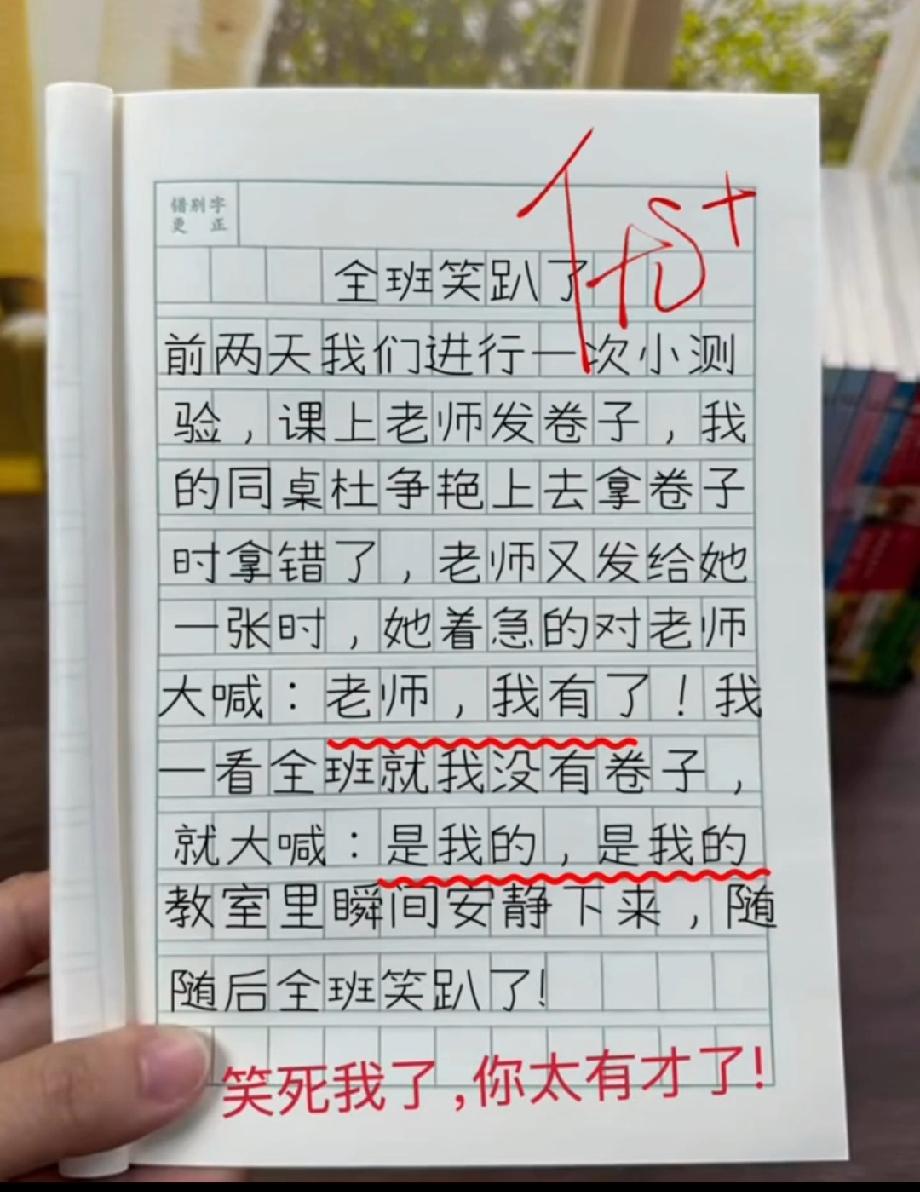 错别字
更 正
优+
全班笑趴了
前两天我们进行一次小测
验，课上老师发卷子，我
的同桌杜争艳上去拿卷子
时拿错了，老师又发给她
一张时，她着急的对老师
大喊：老师，我有了！我
一看全班就我没有卷子，
就大喊：是我的，是我的
教室里瞬间安静下来，随
随后全班笑趴了!
笑死我了,你太有才了!